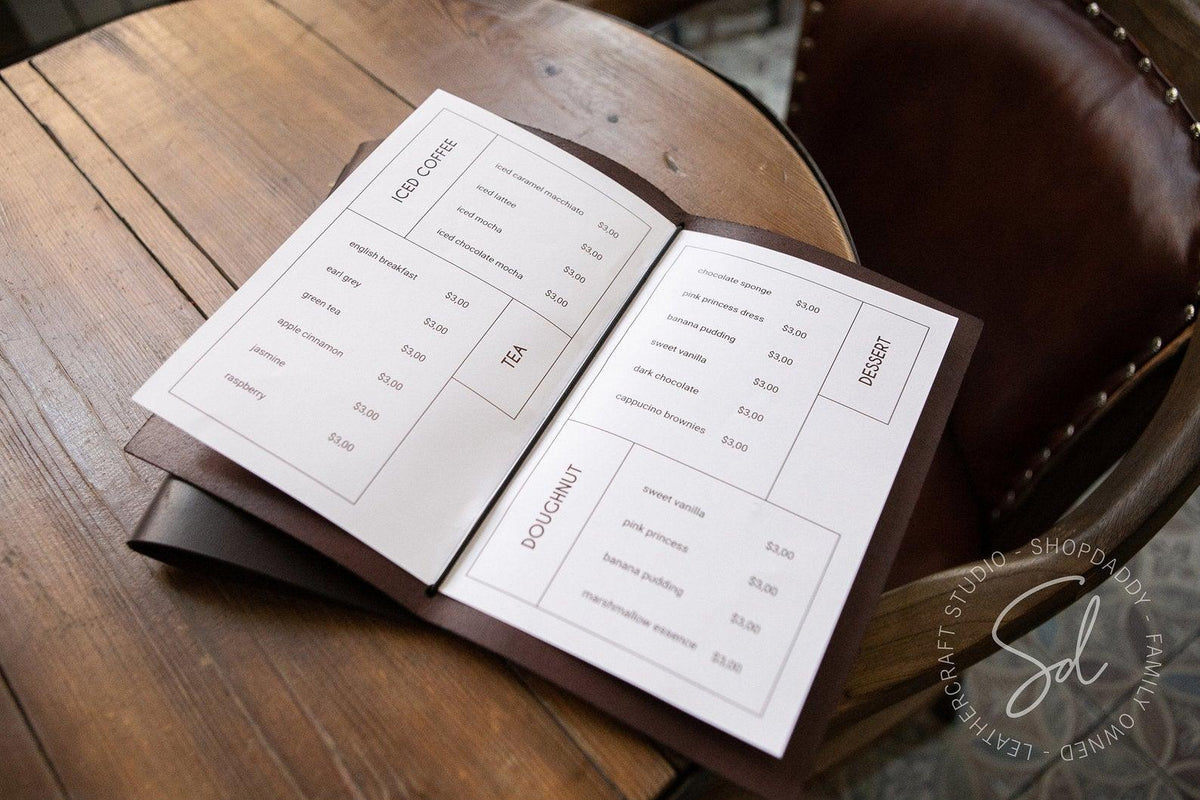 ICED COFFEE
iced caramel macchiato $3,00
iced lattee $3,00
iced mocha $3,00
iced chocolate mocha $3,00
TEA
english breakfast $3,00
earl grey $3,00
green tea $3,00
apple cinnamon $3,00
jasmine $3,00
raspberry $3,00
DESSERT
chocolate sponge $3,00
pink princess dress $3,00
banana pudding $3,00
sweet vanilla $3,00
dark chocolate $3,00
cappucino brownies $3,00
DOUGHNUT
sweet vanilla $3,00
pink princess $3,00
banana pudding $3,00
marshmallow essence $3,00
SHOPDADDY - FAMILY OWNED - LEATHERCRAFT STUDIO -
Sd